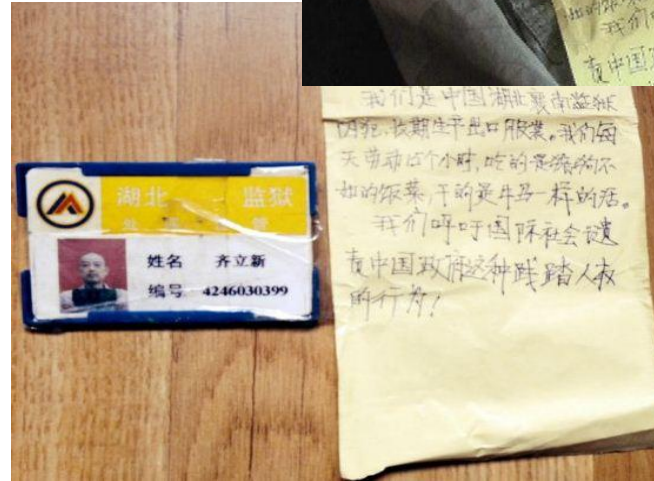 我们
责中国
湖北 监狱
姓名 齐立新
编号 4246030399
我们是中国湖北襄南监狱
囚犯,长期生产出口服装。我们每
天劳动15个小时,吃的是猪狗不
如的饭菜,干的是牛马一样的活。
我们呼吁国际社会谴
责中国政府这种践踏人权
的行为!